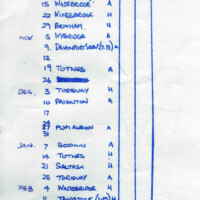 15 WADEBRIDGE A
22 KINGSBRIDGE H
29 BRIXHAM. H
NOV 5 IVYBRIDGE A
9. DEVONPORT SERV (7.15) A
12
19 TOTNES A
26
DEC. 3 TORQUAY H
10 PAIGNTON A
17
24
27 PLYM ALBION A
31
JAN. 7 BODMIN A
14 TOTNES H
21 SALTASH H
28 TORQUAY A
FEB 4 WADEBRIDGE H
11 TAVISTOCK H